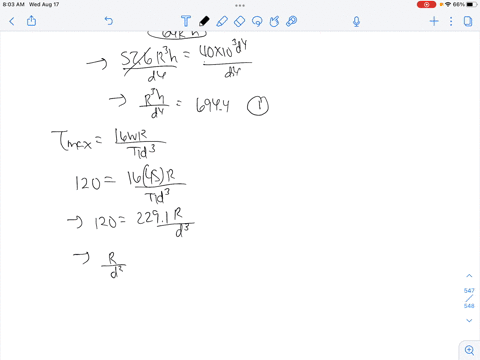 8:03 AM Wed Aug 17
66%
64R³n
→ 57.6R³h/d4 = 40×10³d4/d4
→ R³h/d4 = 694.4 ①
τmax = 16WR/πd³
120 = 16(45)R/πd³
→ 120 = 229.1R/d³
→ R/d³
547
/
548